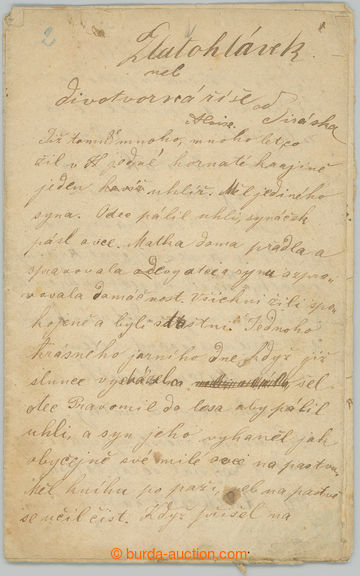 2
Zlatohlávek
neb
divotvorná říše od
Aloise Jiráska
Již tomu mnoho, mnoho let, co
žil v jedné hornaté krajině
jeden uhlíř. Měl jediného
syna. Otec pálil uhlí, synáček
pásl ovce. Matka doma předla a
spravovala oděvy otce a synu a spra-
vovala domácnost. Všichni žili spo-
kojeně a byli šťastni. Jednoho
krásného jarního dne, když již
slunce vycházelo šel
otec Pravomil do lesa aby pálil
uhlí, a syn jeho vyháněl jak
obyčejně své milé ovce na pastvu.
Měl knihu po paží, neb na pastvě
se učil číst. Když přišel na
© burda-auction.com